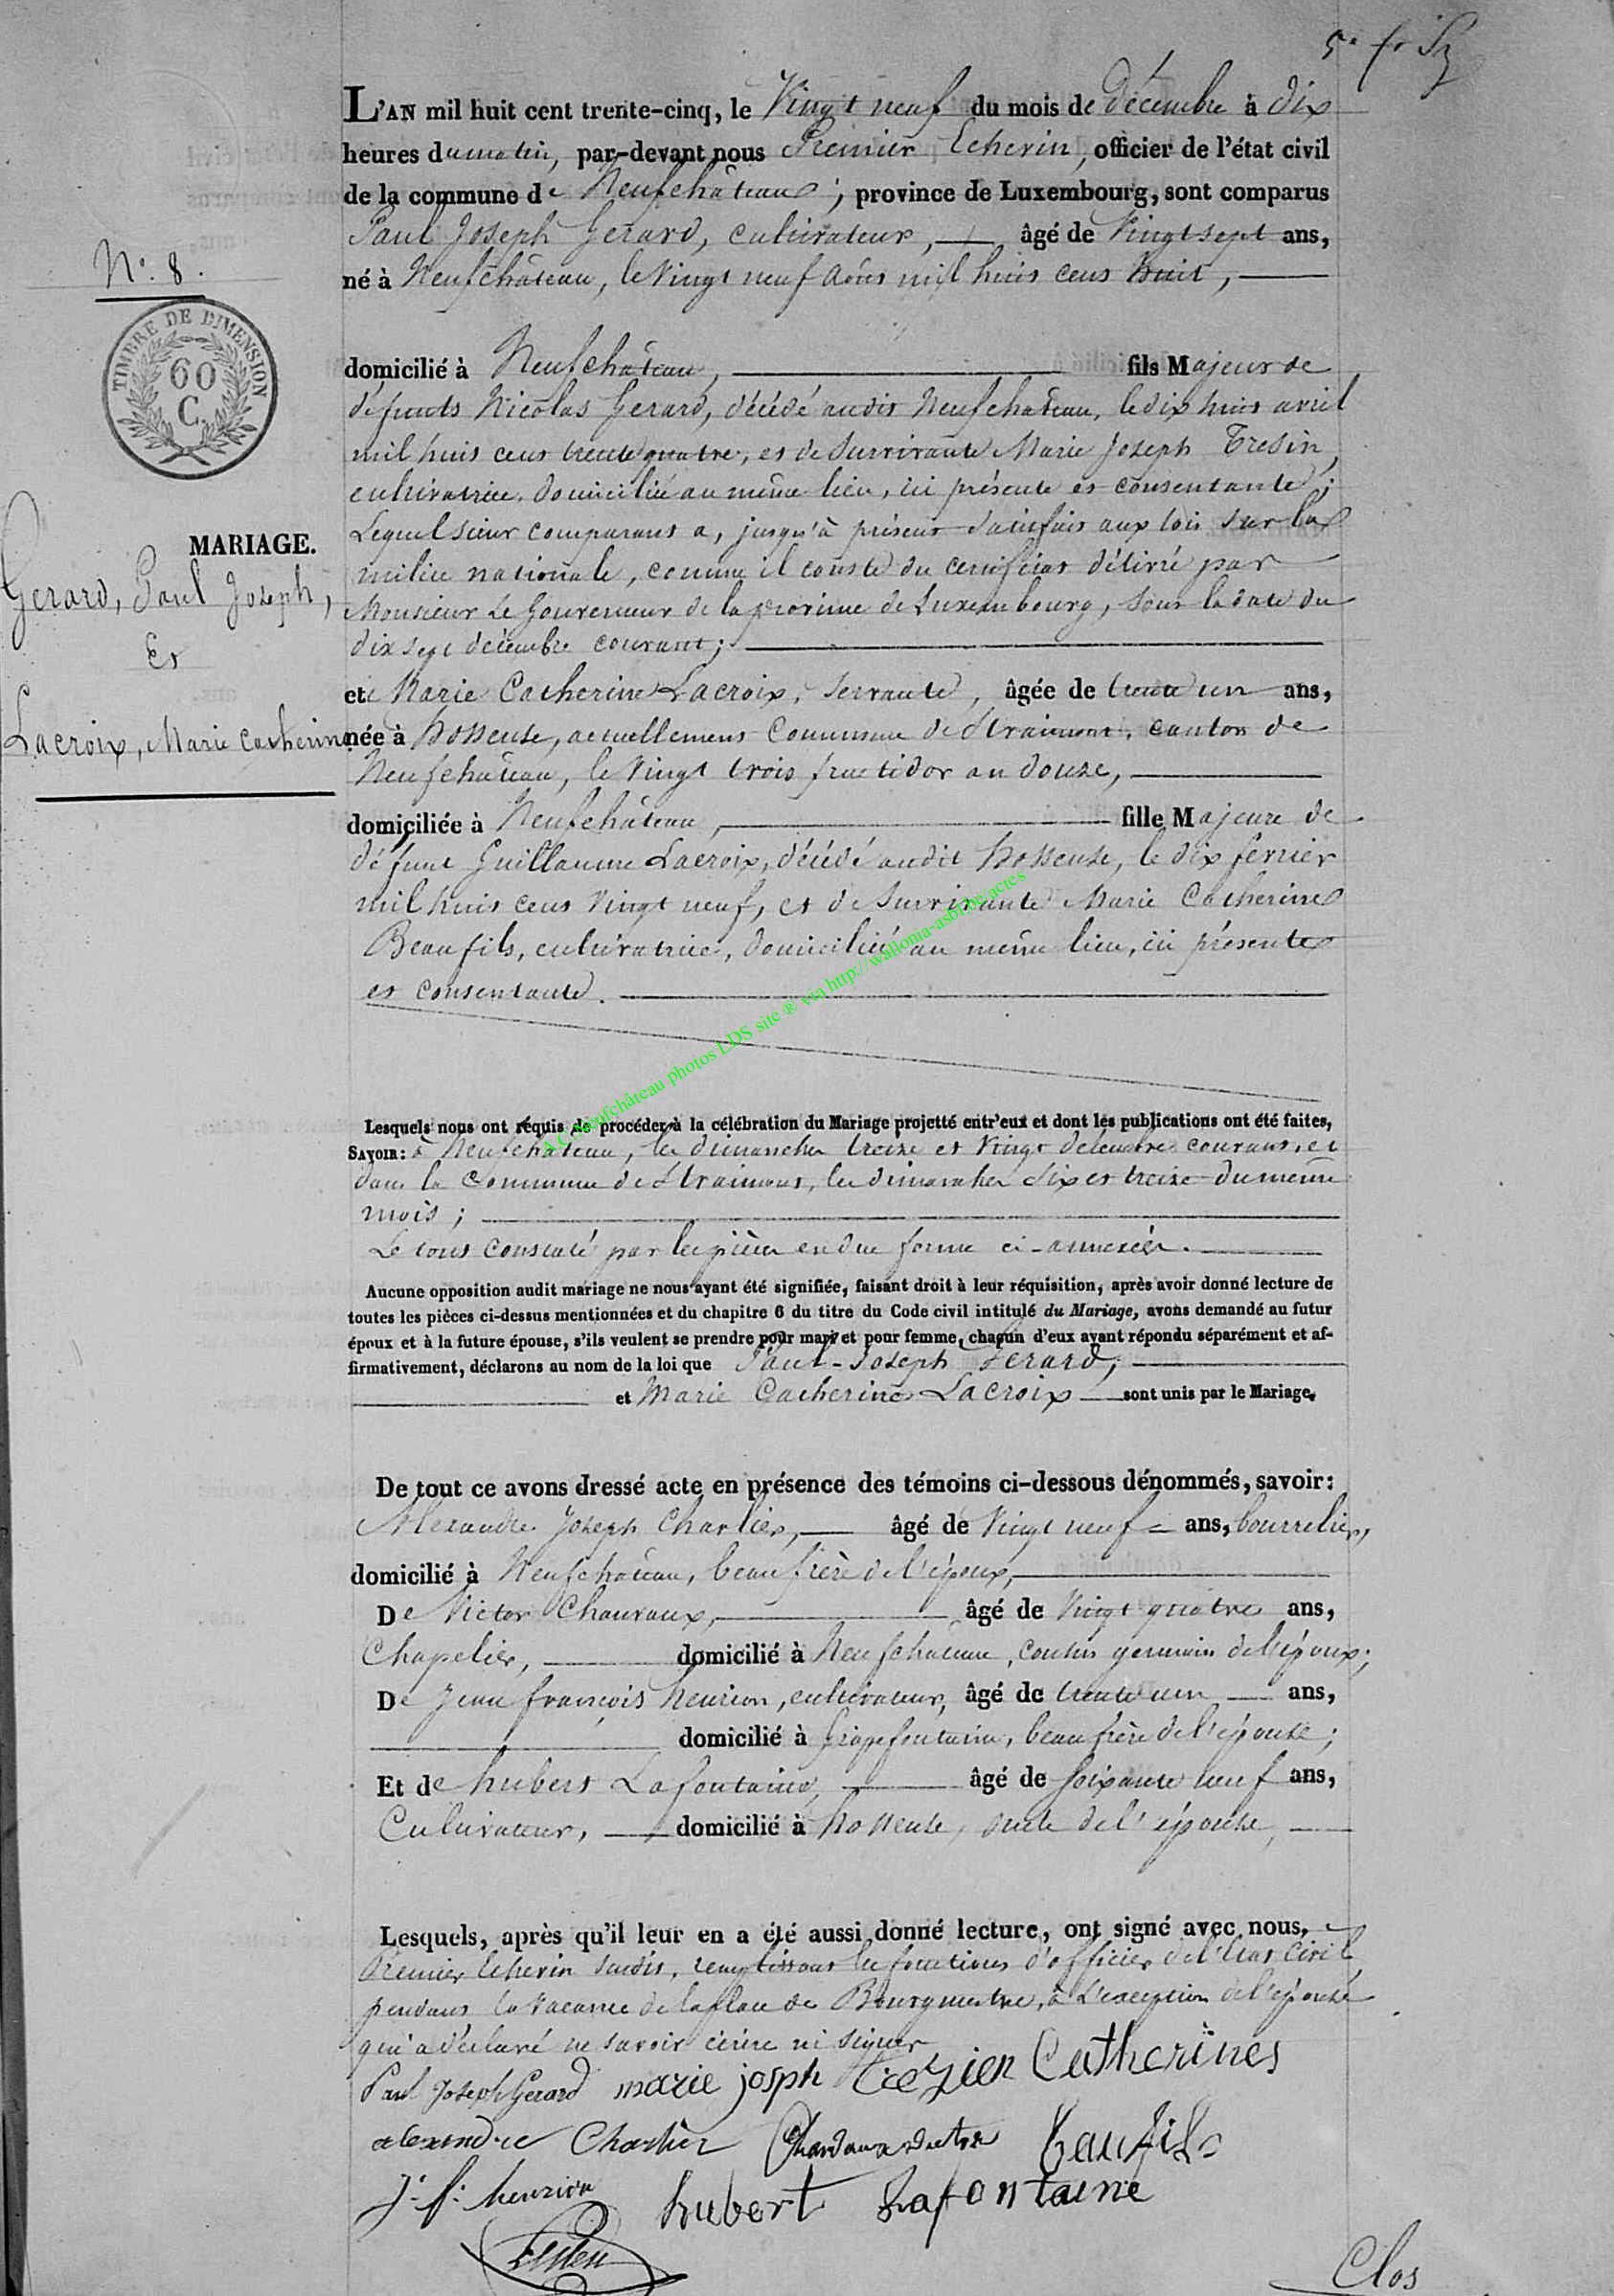 L'AN mil huit cent trente-cinq, le Vingt neuf du mois de Décembre à dix
heures du matin, par-devant nous Premier Echevin, officier de l'état civil
de la commune de Neufchâteau, province de Luxembourg, sont comparus
Paul Joseph Gerard, cultivateur, âgé de Vingt sept ans,
né à Neufchâteau, le Vingt neuf Août mil huit cent huit,
N° 8.
TIMBRE DE DIMENSION
60
C.
domicilié à Neufchâteau, fils Majeur de
défunts Nicolas Gerard, décédé audit Neufchâteau, le dix huit avril
mil huit cent trente quatre, et de Survivante Marie Joseph Tresin,
cultivatrice, domiciliée au même lieu, ici présente et consentante;
Lequel sieur comparant a, jusqu'à présent satisfait aux lois sur la
milice nationale, comme il conste du certificat délivré par
Monsieur Le Gouverneur de la province de Luxembourg, sous la date du
dix sept décembre courant;
MARIAGE.
Gerard, Paul Joseph,
Et
Lacroix, Marie Catherine
et Marie Catherine Lacroix, Servante, âgée de trente un ans,
née à Hosseuse, actuellement Commune de Straimont, canton de
Neufchâteau, le Vingt trois fructidor an douze,
domiciliée à Neufchâteau, fille Majeure de
défunt Guillaume Lacroix, décédé audit Hosseuse, le dix fevrier
mil huit cent Vingt neuf, et de Survivante Marie Catherine
Beaufils, cultivatrice, domiciliée au même lieu, ici présente
et consentante.
A.C. Neufchâteau photos LDS site ® via http://wallonia-asbl.be/actes
Lesquels nous ont réquis de procéder à la célébration du Mariage projetté entr'eux et dont les publications ont été faites,
SAVOIR: à Neufchâteau, les dimanches treize et Vingt décembre courant, et
dans la Commune de Straimont, les dimanches six et treize du même
mois;
Le tout constaté par les pièces en due forme ci-annexées.
Aucune opposition audit mariage ne nous ayant été signifiée, faisant droit à leur réquisition, après avoir donné lecture de
toutes les pièces ci-dessus mentionnées et du chapitre 6 du titre du Code civil intitulé du Mariage, avons demandé au futur
époux et à la future épouse, s'ils veulent se prendre pour mari et pour femme, chacun d'eux ayant répondu séparément et af-
firmativement, déclarons au nom de la loi que Paul-Joseph Gerard,
et Marie Catherine Lacroix sont unis par le Mariage.
De tout ce avons dressé acte en présence des témoins ci-dessous dénommés, savoir:
Alexandre Joseph Charlier, âgé de Vingt neuf ans, bourrelier,
domicilié à Neufchâteau, beau frère de l'époux,
De Victor Chauvaux, âgé de Vingt quatre ans,
Chapelier, domicilié à Neufchâteau, cousin germain de l'époux;
De Jean françois henrion, cultivateur, âgé de trente un ans,
domicilié à Grapefontaine, beau frère de l'épouse;
Et de hubert Lafontaine, âgé de soixante neuf ans,
Cultivateur, domicilié à Hosseuse, oncle de l'épouse,
Lesquels, après qu'il leur en a été aussi donné lecture, ont signé avec nous,
Premier Echevin susdit, remplissant les fonctions d'officier de l'Etat Civil
pendant la vacance de la place de Bourgmestre, à l'exception de l'épouse
qui a déclaré ne savoir écrire ni signer
Paul Joseph Gerard marie josph Catherines
alexendre Charlier beaufils
J. f. henrion hubert Lafontaine
Clos